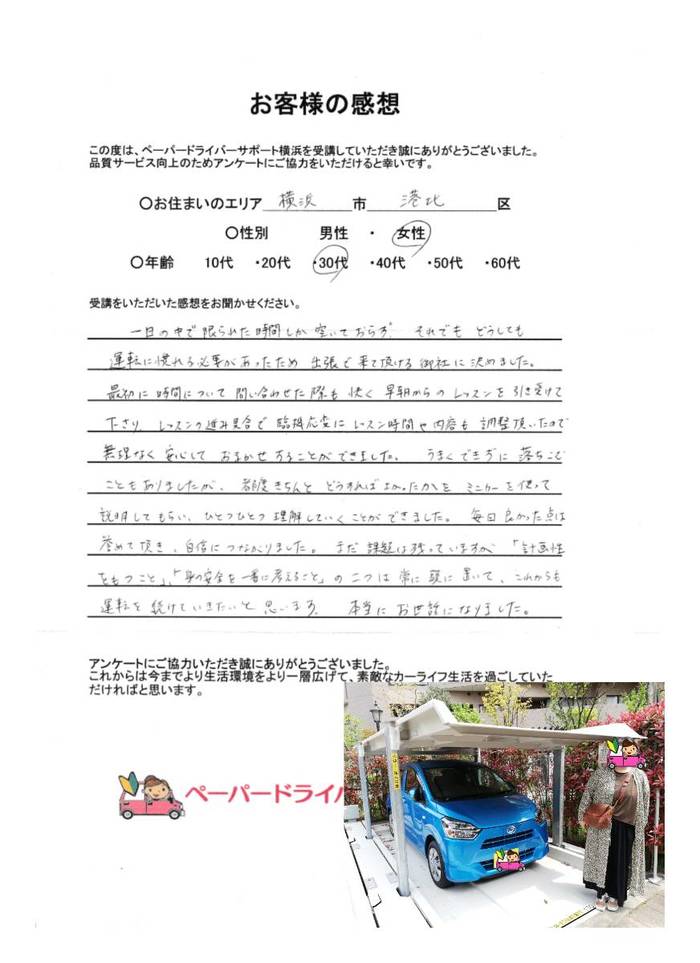 お客様の感想
この度は、ペーパードライバーサポート横浜を受講していただき誠にありがとうございました。
品質サービス向上のためアンケートにご協力をいただけると幸いです。
○お住まいのエリア 横浜 市 港北 区
○性別 男性 ・ 女性
○年齢 10代 ・20代 ・30代 ・40代 ・50代 ・60代
受講をいただいた感想をお聞かせください。
一日の中で限られた時間しか空いておらず、それでもどうしても
運転に慣れる必要があったため 出張で来て頂ける御社に決めました。
最初に時間について問い合わせた際も快く早朝からのレッスンを引き受けて
下さり、レッスンの進み具合で臨機応変にレッスン時間や内容も調整頂いたので
無理なく安心しておまかせすることができました。 うまくできずに落ちこむ
こともありましたが、都度きちんとどうすればよかったかをミニカーを使って
説明してもらい、ひとつひとつ理解していくことができました。 毎回良かった点は
誉めて頂き、自信につながりました。まだ課題は残っていますが「計画性
をもつこと」、「身の安全を一番に考えること」の二つは常に頭に置いて、これからも
運転を続けていきたいと思います。 本当にお世話になりました。
アンケートにご協力いただき誠にありがとうございました。
これからは今までより生活環境をより一層広げて、素敵なカーライフ生活を過ごしていた
だければと思います。
ペーパードライバ